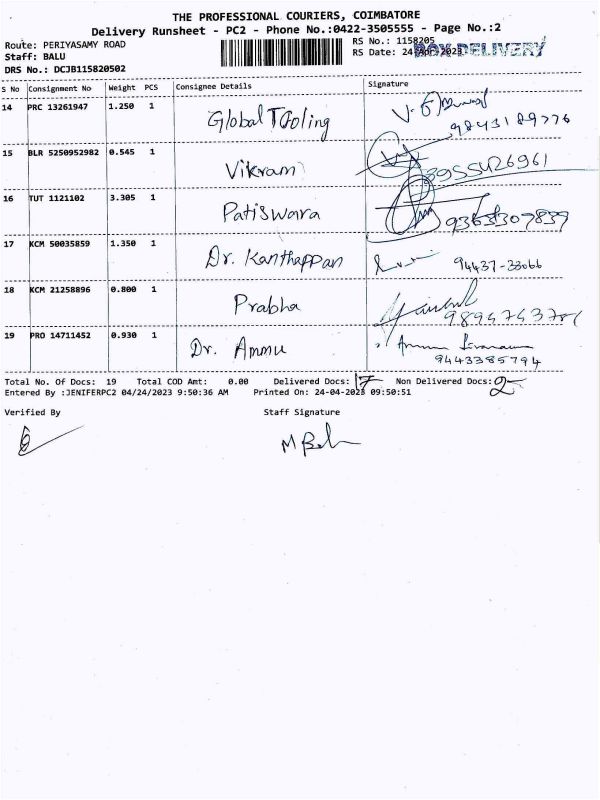 THE PROFESSIONAL COURIERS, COIMBATORE
Delivery Runsheet - PC2 - Phone No.:0422-3505555 - Page No.:2
Route: PERIYASAMY ROAD
RS No.: 1158205
Staff: BALU
RS Date: 24-Apr-2023
BOX DELIVERY
DRS No.: DCJB115820502
S No Consignment No Weight PCS Consignee Details Signature
14 PRC 13261947 1.250 1 Global Tooling
9843189776
15 BLR 5250952982 0.545 1 Vikram
8955426961
16 TUT 1121102 3.305 1 Patiswara
9363307839
17 KCM 50035859 1.350 1 Dr. Kanthappan 94437-33066
18 KCM 21258896 0.800 1 Prabha
19 PRO 14711452 0.930 1 Dr. Ammu
9443385794
Total No. Of Docs: 19 Total COD Amt: 0.00 Delivered Docs: 17 Non Delivered Docs: 2
Entered By :JENIFERPC2 04/24/2023 9:50:36 AM Printed On: 24-04-2023 09:50:51
Verified By Staff Signature